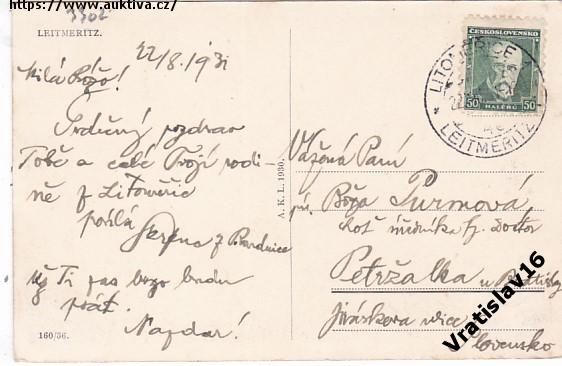 https://www.auktiva.cz/
3302
LEITMERITZ.
22/8.1931
Milá Božo!
Srdečný pozdrav
Tobě a celé Tvojí rodi-
ně z Litoměřic
posílá
z Roudnice
Už Ti zas brzo budu
psát.
Nazdar!
160/36.
A. K. L. 1930.
ČESKOSLOVENSKO
50 50
HALÉŘŮ
LITOMĚŘICE 1
LEITMERITZ 1
Vážená Paní
Boža Purmová,
choť úředníka
Petržalka u Bratislavy
Jiráskova ulice
Slovensko
Vratislav16